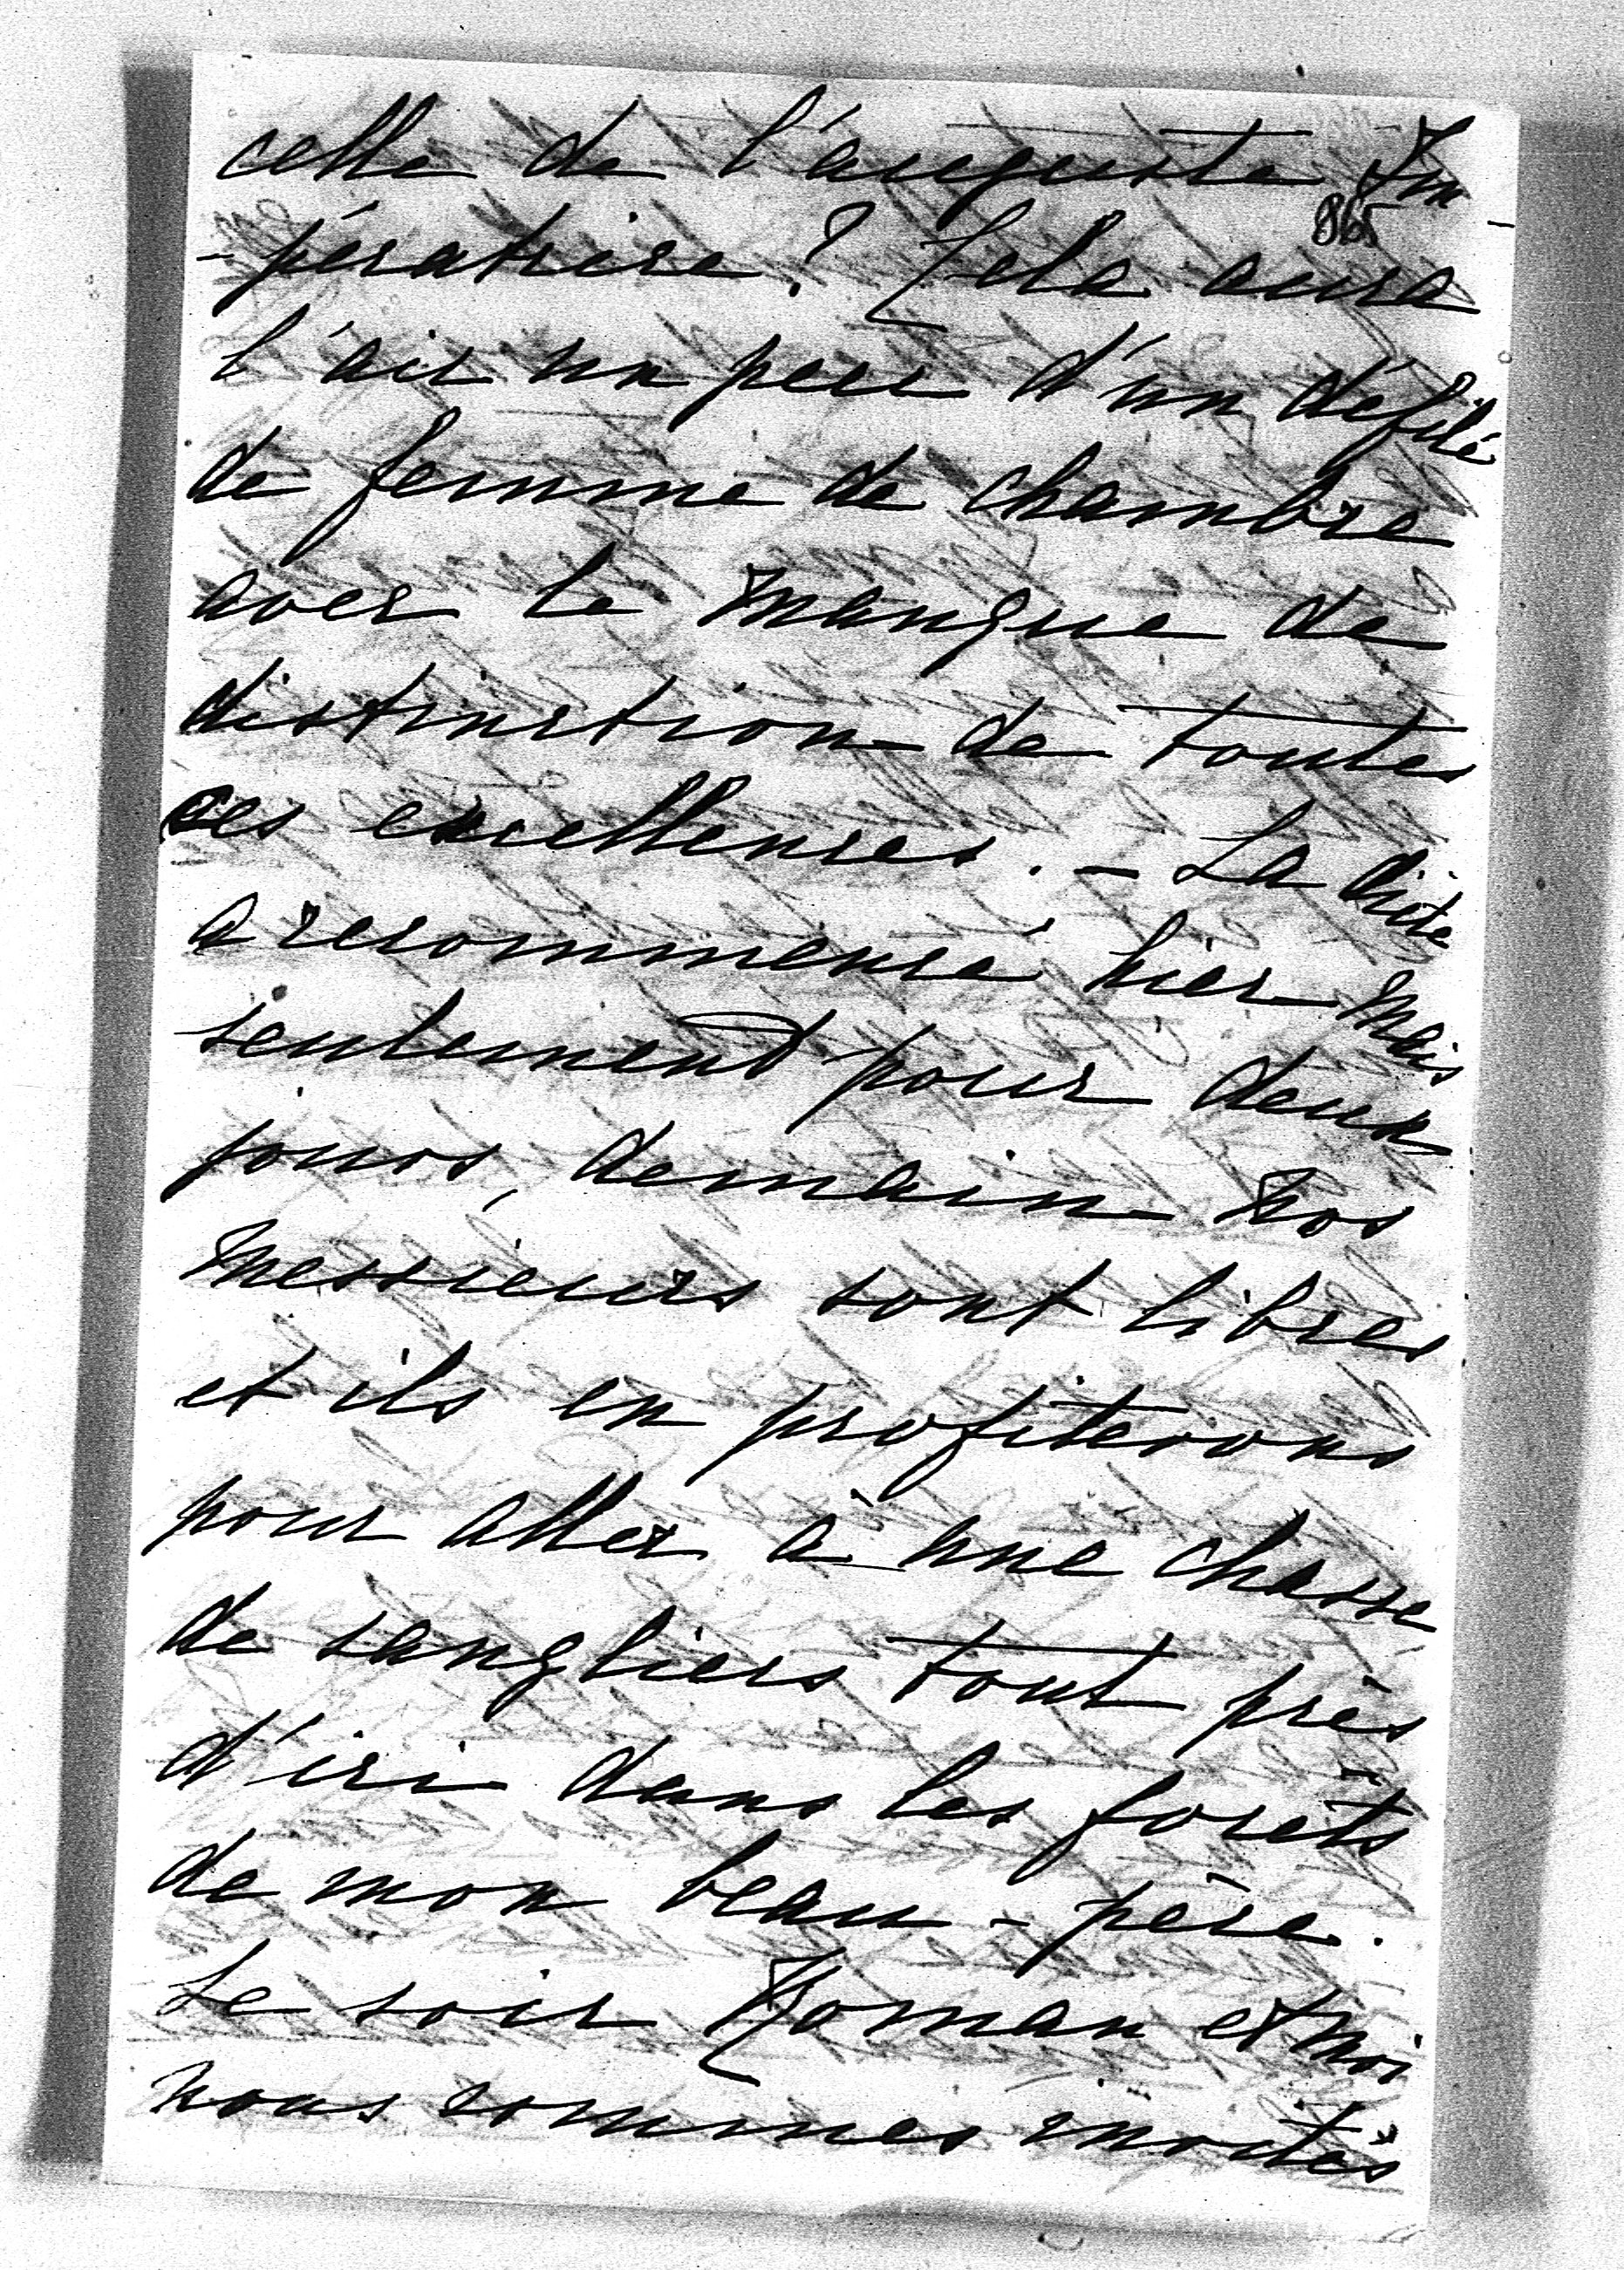 celle de l'auguste Im
865
-pératrice? Cela aura
l'air un peu d'un défilé
de femme de chambre
avec le manque de
distinction de toutes
ces excellences. - La diète
a recommencé hier mais
seulement pour deux
jours, demain nos
messieurs sont libres
et ils en profiterons
pour aller à une chasse
de sangliers tout près
d'ici dans les forêts
de mon beau-père.
Le soir Roman et moi
nous sommes invités